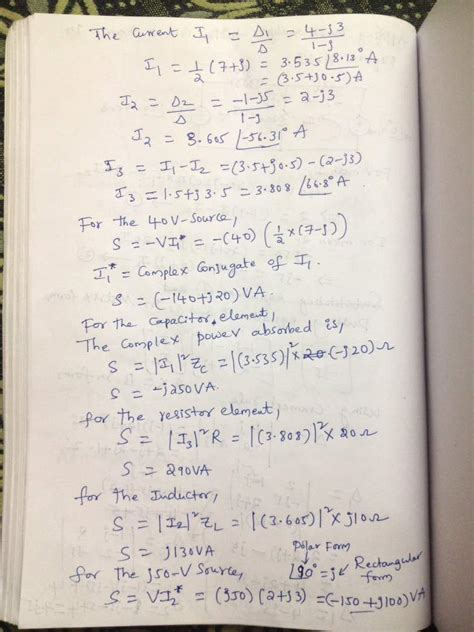 The Current I₁ = Δ₁/Δ = 4-j3/1-j
I₁ = 1/2 (7+j) = 3.535 ∠8.13° A
= (3.5+j0.5)A
I₂ = Δ₂/Δ = -1-j5/1-j = 2-j3
I₂ = 3.605 ∠-56.31° A
I₃ = I₁-I₂ = (3.5+j0.5) - (2-j3)
I₃ = 1.5+j3.5 = 3.808 ∠66.8° A
For the 40V-Source,
S = -VI₁* = -(40) (1/2 × (7-j))
I₁* = Complex Conjugate of I₁.
S = (-140+j20) VA.
For the capacitor element,
The Complex power absorbed is,
S = |I₁|² Zc = |(3.535)|² × (-j20) Ω
S = -j250VA.
for the resistor element,
S = |I₃|² R = |(3.808)|² × 20Ω
S = 290VA
for the Inductor,
S = |I₂|² ZL = |(3.605)|² × j10Ω
S = j130VA
Polar Form
∠90° = j Rectangular form
for The j50-V Source,
S = VI₂* = (j50) (2+j3) = (-150+j100) VA